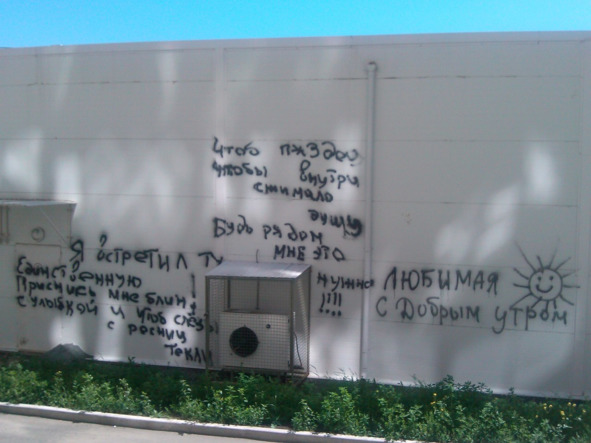 Я встретил ту
Единственную
Приснись мне блин!
с улыбкой и чтоб слёзы
с ресниц
текли
чтоб
чтобы внутри
сжимало
душу
Будь рядом
мне это
нужно
!!!!
ЛЮБИМАЯ
С Добрым утром